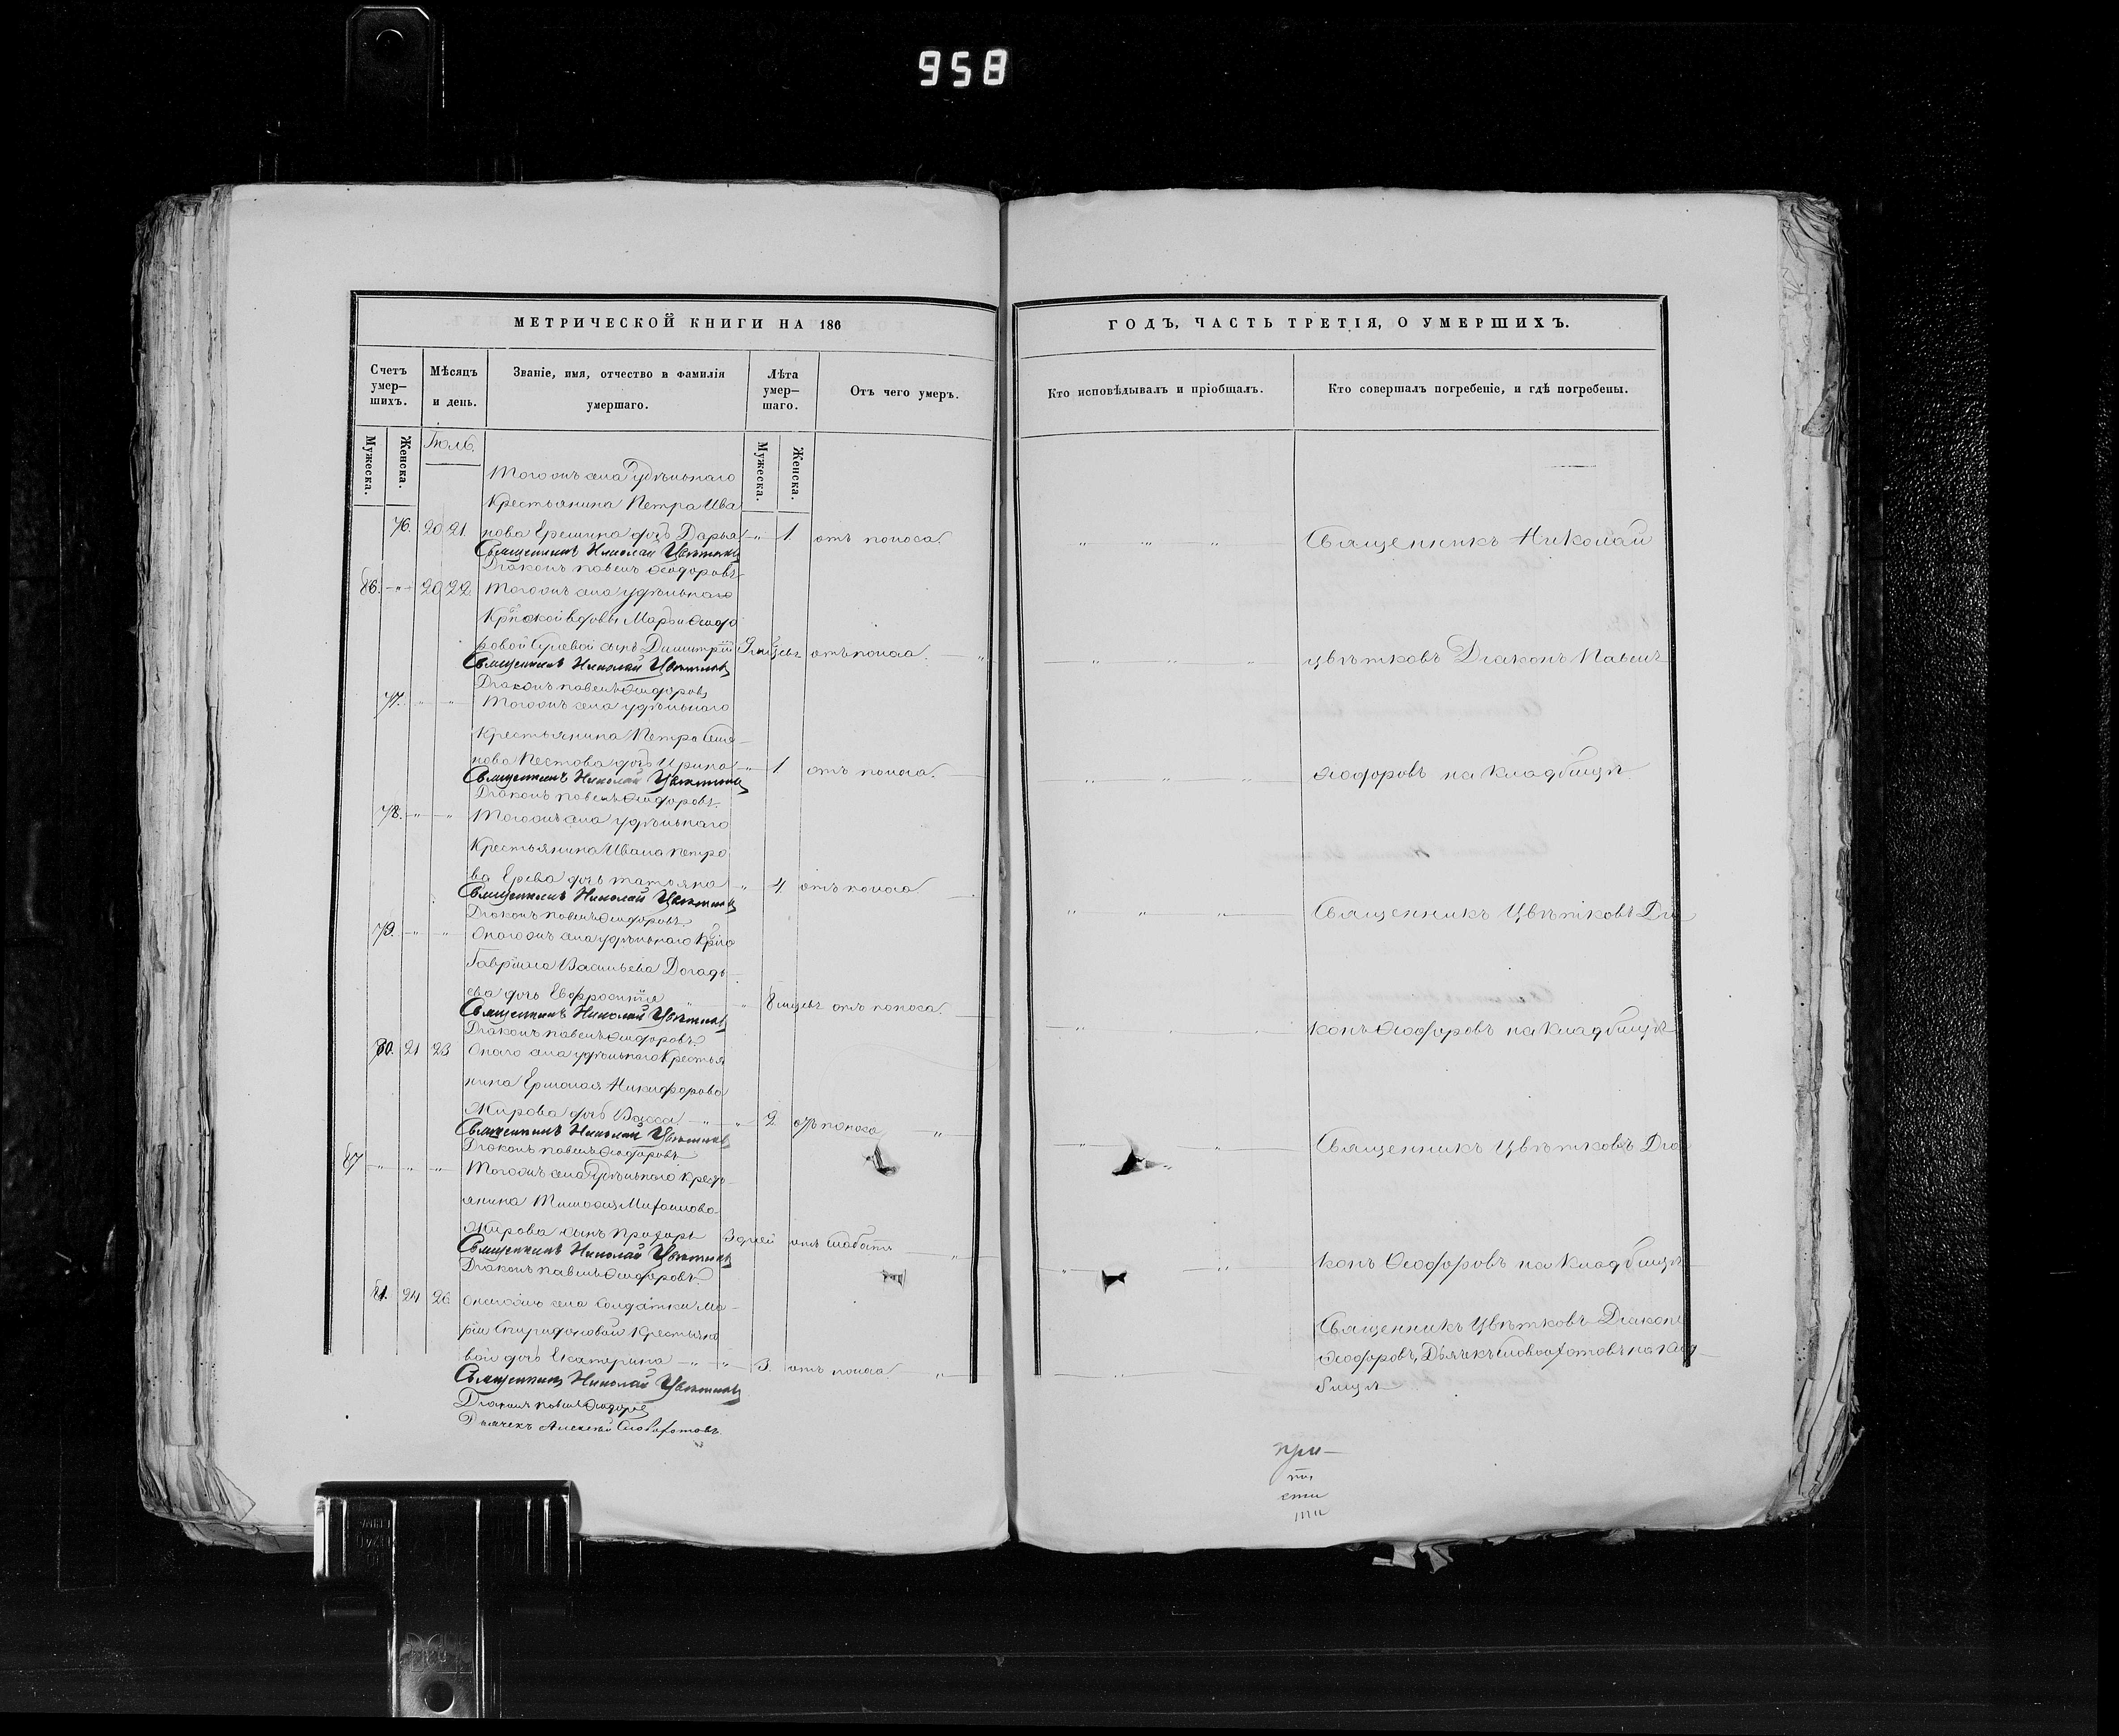 958
МЕТРИЧЕСКОЙ КНИГИ НА 186
ГОДЪ, ЧАСТЬ ТРЕТІЯ, О УМЕРШИХЪ.
Счетъ умер-шихъ.
Мѣсяцъ и день.
Званіе, имя, отчество и фамилія умершаго.
Лѣта умер-шаго.
Отъ чего умеръ.
Кто исповѣдывалъ и пріобщалъ.
Кто совершалъ погребеніе, и гдѣ погребены.
Мужеска.
Женска.
Іюль.
Мужеска.
Женска.
Тогожъ села Удѣльнаго
Крестьянина Петра Ива
76. 20 21 нова Дарья " 1 отъ поноса. " " " Священникъ Николай
Священникъ Николай Цвѣтковъ
Діаконъ Павелъ Ѳеодоровъ
86. " 20 22 Тогожъ села удѣльнаго
вдовы Марьи Ѳеодо
ровой сынъ Димитрій отъ поноса " " " " Цвѣтковъ Діаконъ Павелъ
Священникъ Николай Цвѣтковъ
Діаконъ Павелъ Ѳеодоровъ
77. " " Тогожъ села удѣльнаго
Крестьянина Петра
нова Пестова дочь Ирина " 1 отъ поноса. " " " Ѳеодоровъ на кладбищѣ.
Священникъ Николай Цвѣтковъ
Діаконъ Павелъ Ѳеодоровъ.
78. " " Тогожъ села удѣльнаго
Крестьянина Ивана Петро
ва дочь Татьяна " 4 отъ поноса " " " Священникъ Цвѣтковъ Діа
Священникъ Николай Цвѣтковъ
Діаконъ Павелъ Ѳеодоровъ.
79. " " Оногожъ села удѣльнаго
Гавріила Васильева Догадь-
ева дочь Евфросинія " 8 мцевъ отъ поноса. " " " конъ Ѳеодоровъ на кладбищѣ
Священникъ Николай Цвѣтковъ
Діаконъ Павелъ Ѳеодоровъ.
80. 21 23 Оного села удѣльнаго Крестья
нина Ермолая Никифорова
Жирова дочь Васса " " 2 отъ поноса " " " Священникъ Цвѣтковъ Діа
Священникъ Николай Цвѣтковъ
Діаконъ Павелъ Ѳеодоровъ
87 " " " Тогожъ села Удѣльнаго
янина Тимоѳея
Жирова сынъ 3 дней отъ " " " конъ Ѳеодоровъ на кладбищѣ
Священникъ Николай Цвѣтковъ
Діаконъ Павелъ Ѳеодоровъ.
81. 24 26 Оногожъ села Солдатки Ма-
ріи Спиридоновой Крестьяно
вой дочь Екатерина " " 3. отъ поноса " "
Священникъ Цвѣтковъ Діаконъ
Ѳеодоровъ, Дьячекъ Словохотовъ на клад-
бищѣ
Священникъ Николай Цвѣтковъ
Діаконъ Павелъ Ѳеодоровъ
Дьячекъ Алексѣй Словохотовъ.
при-